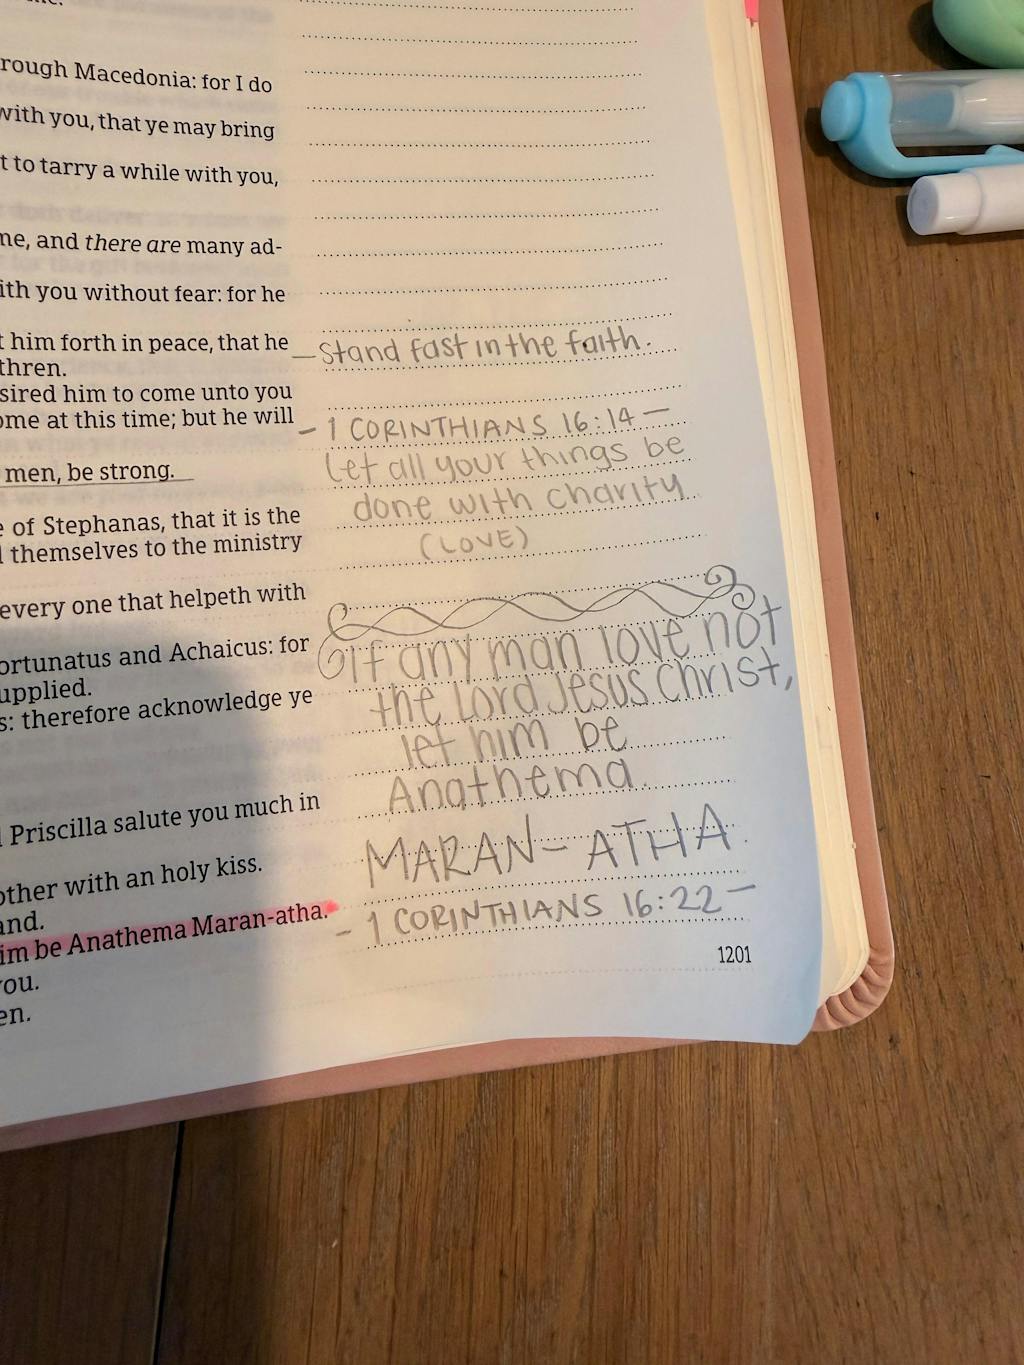 rough Macedonia: for I do
with you, that ye may bring
t to tarry a while with you,
me, and there are many ad-
ith you without fear: for he
t him forth in peace, that he
thren.
sired him to come unto you
ome at this time; but he will
men, be strong.
e of Stephanas, that it is the
d themselves to the ministry
every one that helpeth with
ortunatus and Achaicus: for
upplied.
s: therefore acknowledge ye
Priscilla salute you much in
other with an holy kiss.
and.
im be Anathema Maran-atha.
you.
en.
— Stand fast in the faith.
- 1 CORINTHIANS 16:14 —
Let all your things be
done with charity
(LOVE)
If any man love not
the Lord Jesus Christ,
let him be
Anathema
MARAN-ATHA.
- 1 CORINTHIANS 16:22 —
1201